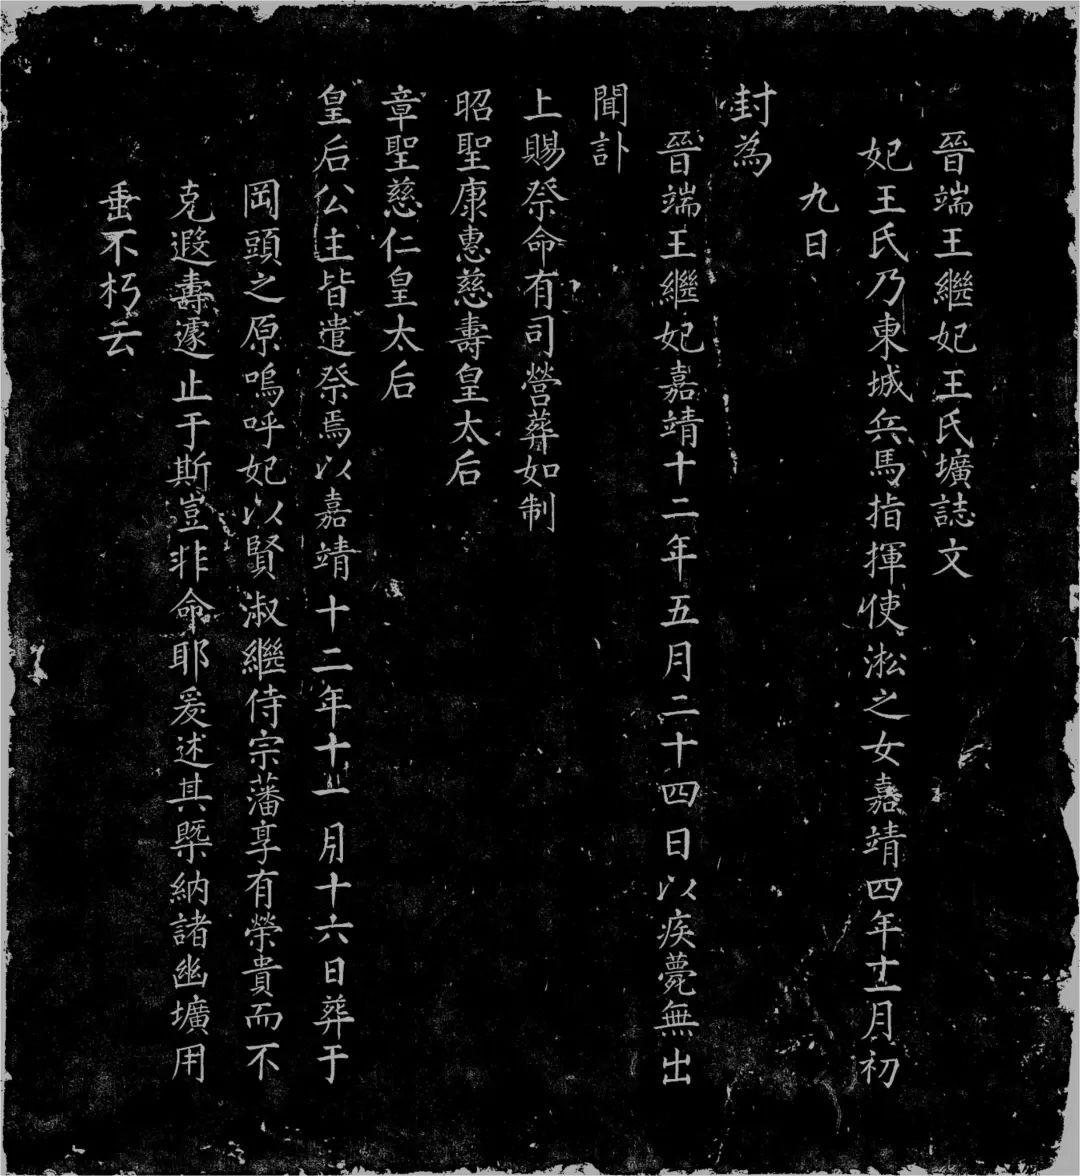 晉端王繼妃王氏壙誌文
妃王氏乃東城兵馬指揮使淞之女嘉靖四年十二月初
九日
封為
晉端王繼妃嘉靖十二年五月二十四日以疾薨無出
聞訃
上賜祭命有司營葬如制
昭聖康惠慈壽皇太后
章聖慈仁皇太后
皇后公主皆遣祭焉以嘉靖十二年十一月十六日葬于
岡頭之原嗚呼妃以賢淑繼侍宗藩享有榮貴而不
克遐壽遽止于斯豈非命耶爰述其槩納諸幽壙用
垂不朽云